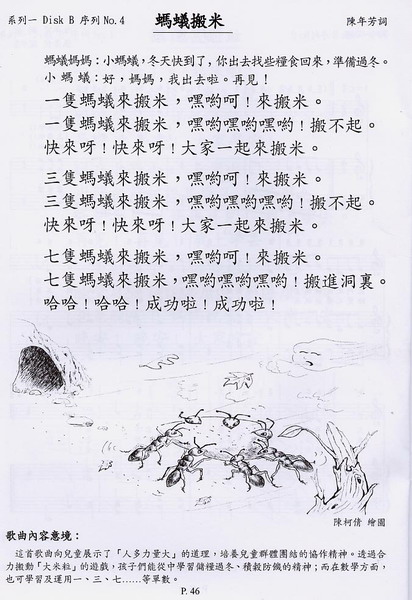 系列一 Disk B 序列No.4
螞蟻搬米
陳年芳詞
螞蟻媽媽：小螞蟻，冬天快到了，你出去找些糧食回來，準備過冬。
小 螞 蟻：好，媽媽，我出去啦。再見！
一隻螞蟻來搬米，嘿喲呵！來搬米。
一隻螞蟻來搬米，嘿喲嘿嘿喲喲！搬不起。
快來呀！快來呀！大家一起來搬米。
三隻螞蟻來搬米，嘿喲呵！來搬米。
三隻螞蟻來搬米，嘿喲嘿嘿喲喲！搬不起。
快來呀！快來呀！大家一起來搬米。
七隻螞蟻來搬米，嘿喲呵！來搬米。
七隻螞蟻來搬米，嘿喲嘿喲嘿喲喲！搬進洞裏。
哈哈！哈哈！成功啦！成功啦！
陳柯倩 繪圖
歌曲內容意境：
這首歌曲向兒童展示了「人多力量大」的道理，培養兒童群體團結的協作精神。透過合
力搬動「大米粒」的遊戲，孩子們能從中學習儲糧過冬、積穀防饑的精神；而在數學方面，
也可學習及運用一、三、七……等單數。
P. 46